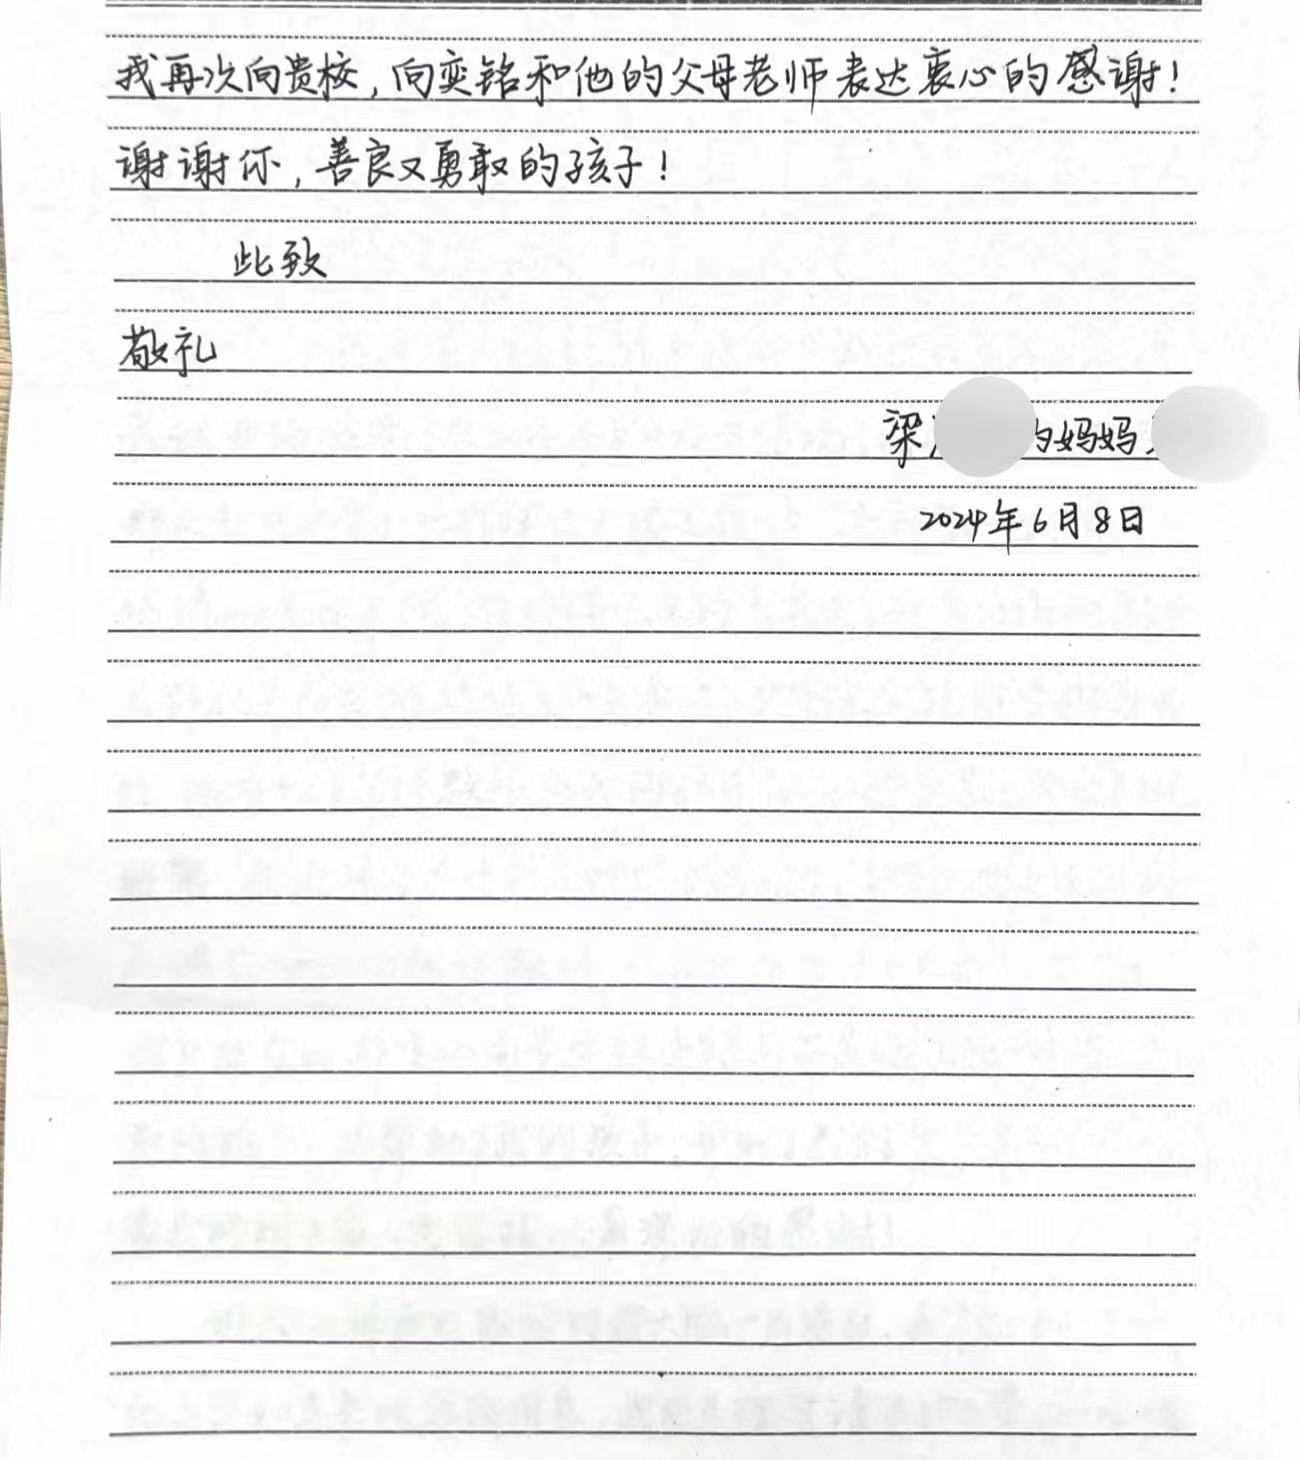 我再次向贵校，向奕铭和他的父母老师表达衷心的感谢！
谢谢你，善良又勇敢的孩子！
此致
敬礼
梁 的妈妈
2024年6月8日